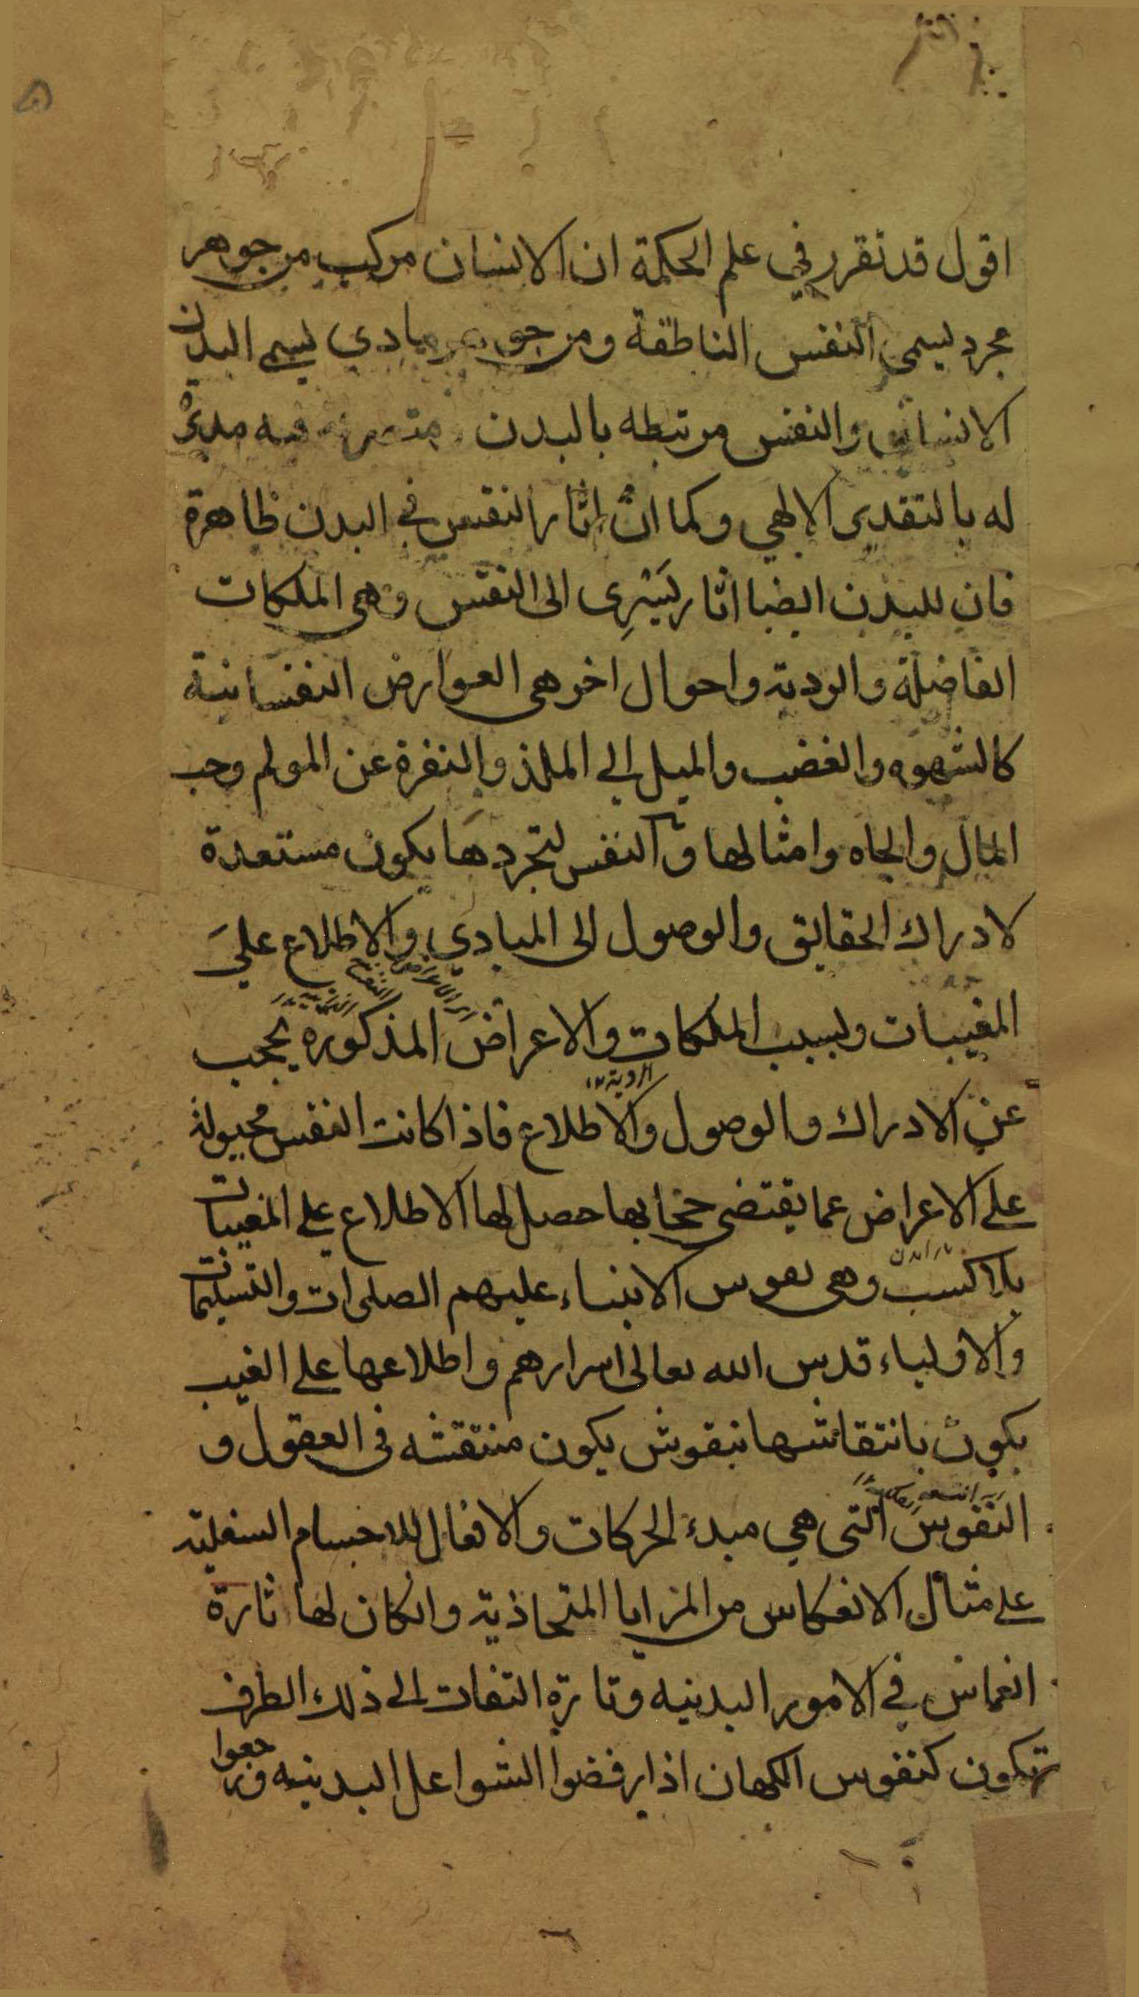 اقول قد تقرر في علم الحكمة ان الانسان مركب من جوهر
مجرد يسمى النفس الناطقة ومن جوهر مادي يسمى البدن
الانساني والنفس مرتبطه بالبدن متصرفه فيه مدبرة
له بالتقدير الالهي وكما ان اثار النفس في البدن ظاهرة
فان للبدن ايضا اثار يَسْرِى الى النفس وهى الملكات
الفاضلة والرديه واحوال اخر هى العوارض النفسانية
كالشهوه والغضب والميل الى الملذ والنفرة عن المولم وحب
المال والجاه وامثالها و النفس لتجردها يكون مستعدة
لادراك الحقايق والوصول الى المبادي والاطلاع على
المغيبات ولسبب الملكات والاعراض المذكوره يحجب
الردية
عن الادراك والوصول والاطلاع فاذا كانت النفس مجبولة
على الاعراض عما يقتضى حجابها حصل لها الاطلاع على المغيبات
بلا كسب وهى نفوس الانبياء عليهم الصلوات والتسليمات
والاولياء قدس الله تعالى اسرارهم واطلاعها على الغيب
يكون بانتقاشها بنقوش يكون منتقشه فى العقول و
النفوس التى هي مبدء الحركات والافعال للاجسام السفلية
على مثال الانعكاس من المرايا المتحاذية وان كان لها تارة
انغماس في الامور البدنيه وتارة التفات الى ذلك الطرف
تكون كنفوس الكهان اذا رفضوا الشواعل البدنيه ورجعوا